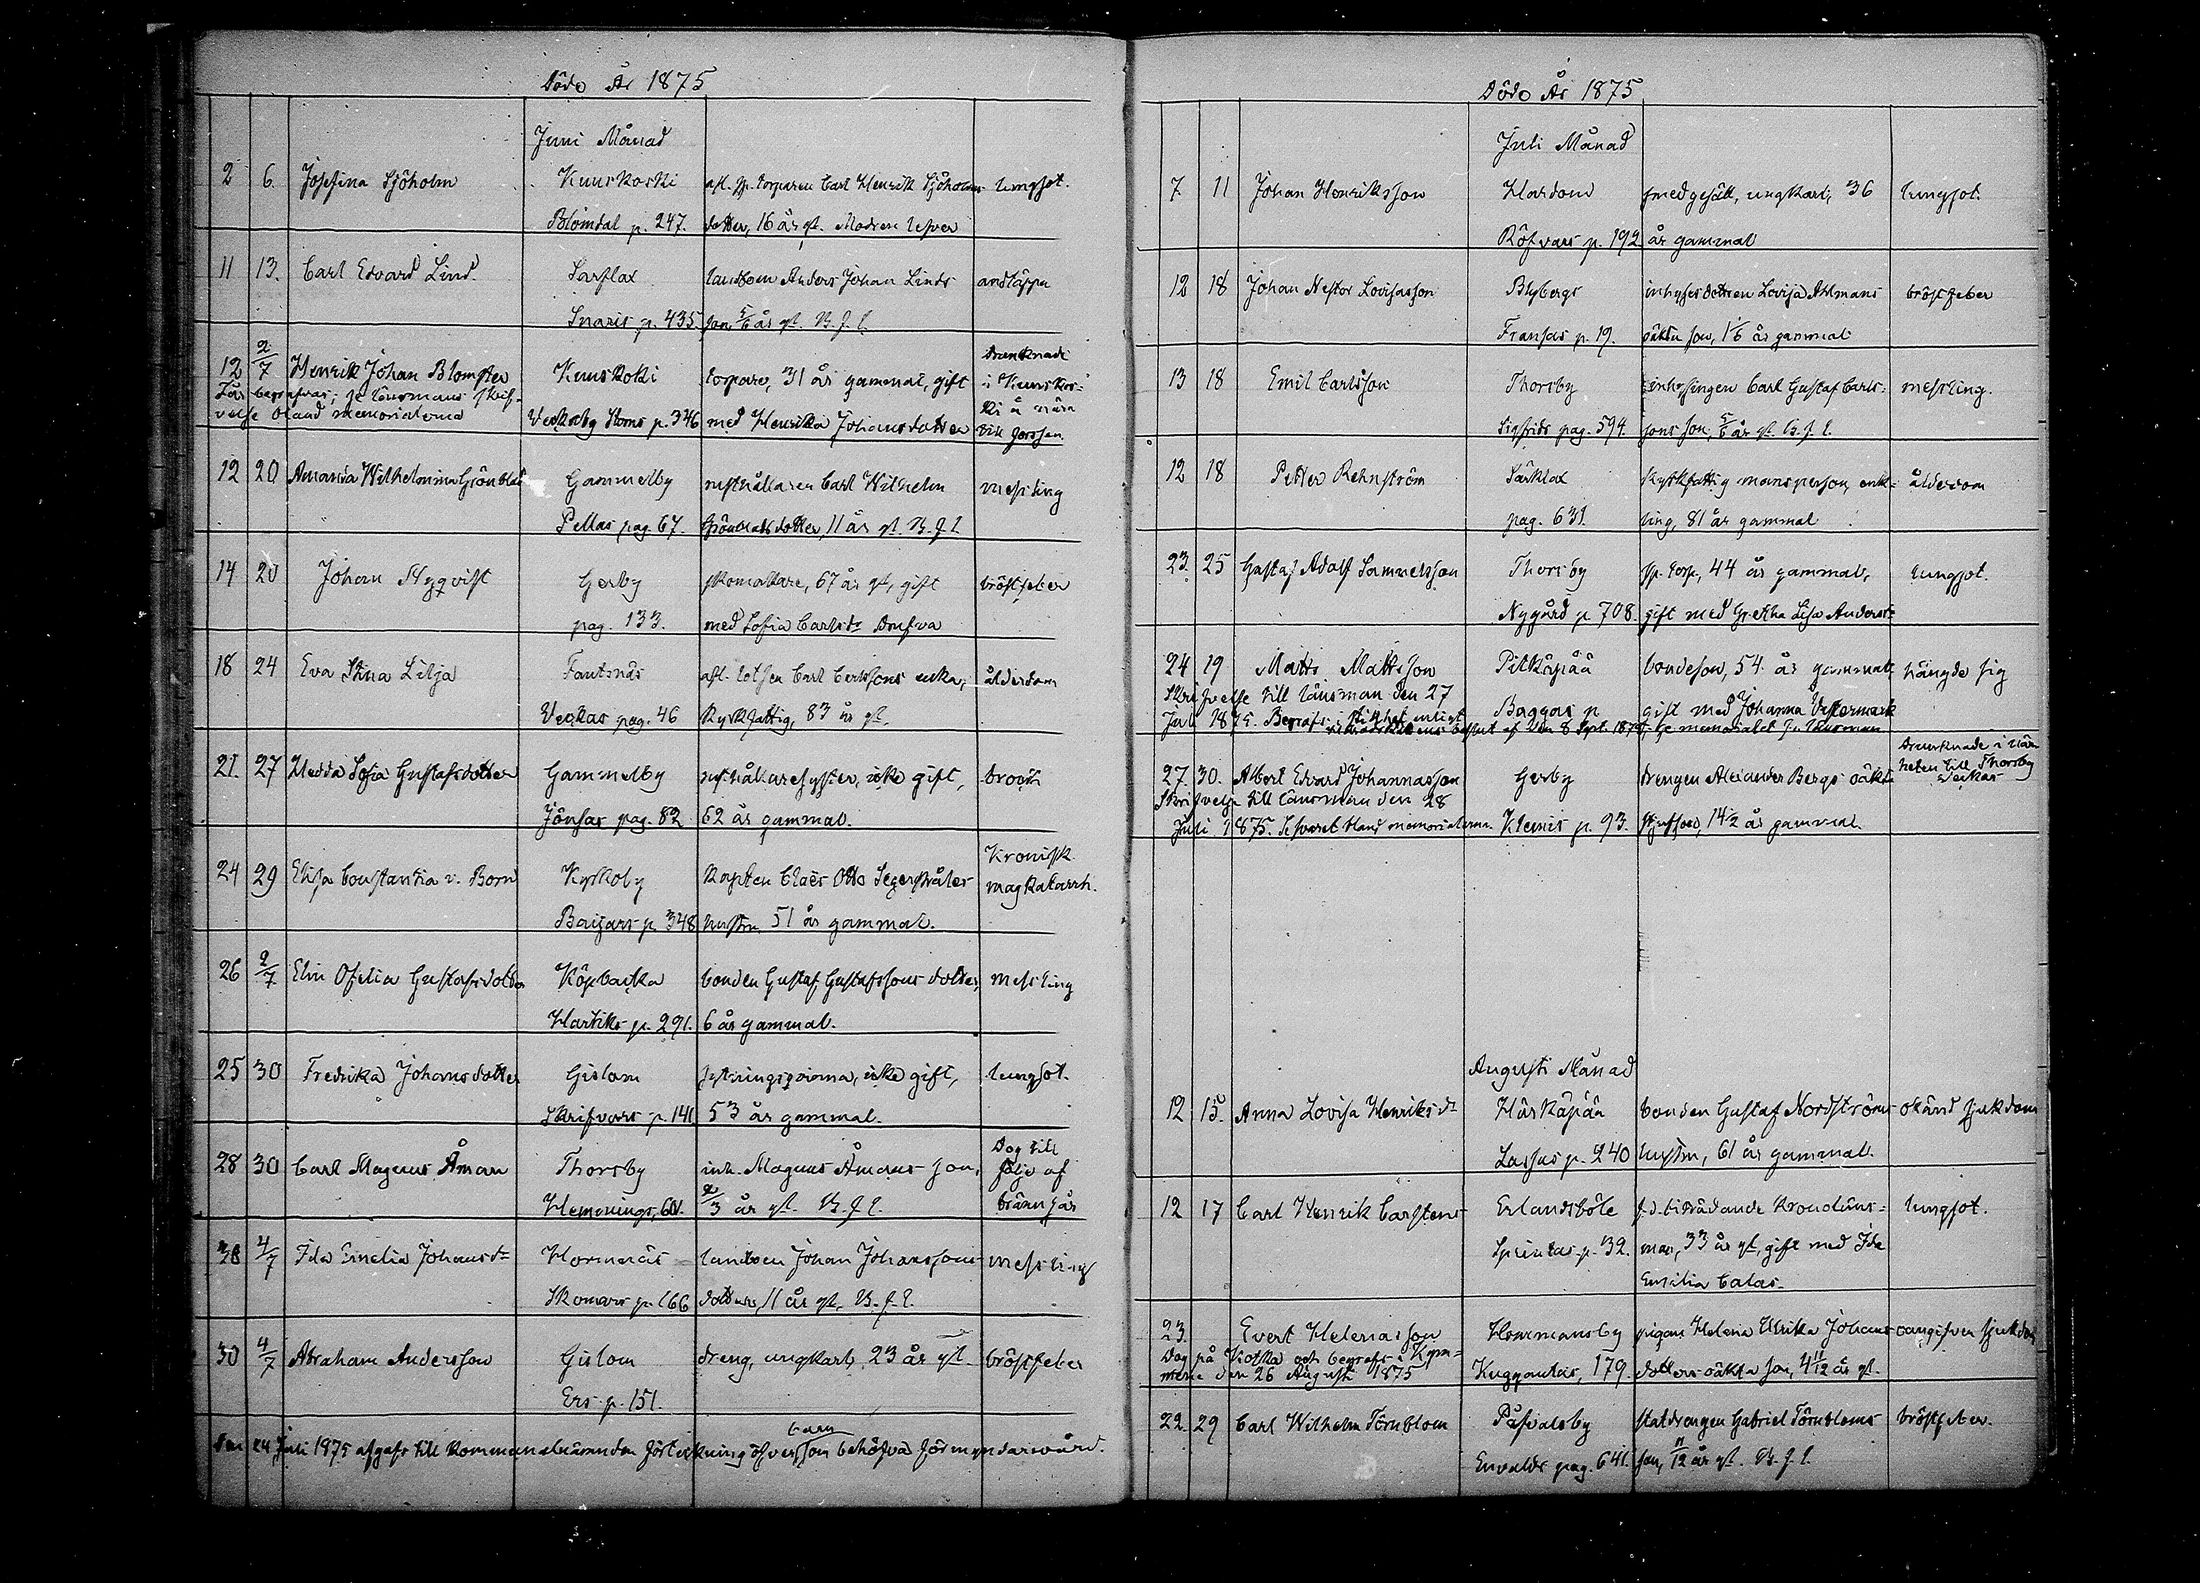 Döde År 1875
Juni Månad
2 6. Josefina Sjöholm Kuuskoski afl. sp. torparen Carl Henrik Sjöholms lungsot.
Blomdal p. 247. dotter, 16 år gl. Modren lefver
11 13. Carl Edvard Lind Sarflax landtbon Anders Johan Linds andtäppa
Snaris p. 435. son, 5/6 år gl. B. f. l.
12 2/7 Henrik Johan Blomster Kuuskoski torpare, 31 år gammal, gift drunknade
i Kuuskos-
Får begrafvas; se länsmans skrif-
velse bland memorialerna Veckoby Storns p. 346 med Henrika Johansdotter ki å nära
forssen
12 20 Amanda Wilhelmina Grönblad Gammelby rusthållaren Carl Wilhelm messling
Pellas pag. 67. Grönblads dotter, 11 år gl. B. f. l.
14 20 Johan Nyqvist Gerby skomakare, 67 år gl., gift bröstfeber
pag. 133. med Sofia Carlsdr Drufva
18 24 Eva Stina Lilja Fantsnäs afl. lotsen Carl Carlssons enka, ålderdom
Veckas pag. 46 kyrkfattig, 83 år gl.
21. 27 Hedda Sofia Gustafsdotter Gammelby rusthållaresyster, icke gift,
Jönsas pag. 82 62 år gammal.
24 29 Elisa Constantia v. Born Kyrkoby kapten Claës Otto Segerstråles Kronisk
magkatarrh.
Baggars p. 348 hustru 51 år gammal.
26 2/7 Elin Ofelia Gustafsdotter Köpbacka bonden Gustaf Gustafssons dotter, messling
Hartiks p. 291. 6 år gammal.
25 30 Fredrika Johansdotter Gislom sytningspiona, icke gift, lungsot.
Skrifvars p. 141 53 år gammal.
28 30 Carl Magnus Åman Thorsby inh. Magnus Åmans son, Dog till
följe af
Hemmings, 2/3 år gl. B. f. l. brännsår
30 4/7 Ida Emelia Johansdr Hormnäs landtbon Johan Johanssons messling
Skomars p. 166 dotter, 11 år gl. B. f. l.
30 4/7 Abraham Andersson Gislom dreng, ungkarl, 23 år gl. bröstfeber
Ers p. 151.
Den 24 Juli 1875 afgafs till Kommunalnämnden förteckning öfver barn som behöfva förmyndarevård.
Döde År 1875
Juli Månad
7 11 Johan Henriksson Hardom smedgesäll, ungkarl, 36 lungsot.
Röfvars p. 192 år gammal
12 18 Johan Nestor Lovisasson Byberga inhyses dottren Lovisa Ahlmans bröstfeber
Fransas p. 19. oäkta son, 1 1/6 år gammal
13 18 Emil Carlsson Thorsby inhysingen Carl Gustaf Carls- messling.
Sigfrids pag. 594. sons son, 5/6 år gl. B. f. l.
12 18 Petter Rehnström Särklax kyrkfattig mansperson, enk- ålderdom
pag. 631. ling, 81 år gammal
23. 25 Gustaf Adolf Samuelsson Thorsby sp. torp., 44 år gammal, lungsot.
Nygård p. 708. gift med Gretha Lisa Andersdr
24 19 Matts Mattsson Pitkäpää bondeson, 54 år gammal, hängde sig
Skrifvelse till länsman den 27
Juli 1875. Begrafs i stillhet enligt Baggas p gift med Johanna Vestermark
af den 8 Sept. 1875. Se memorialet fr. Länsman
27. 30. Albert Edvard Johannasson Gerby drengen Alexander Bergs oäkta Drunknade i när-
heten till Thorsby
Skrifvelse till länsman den 28
Juli 1875. Se svaret bland memorialerna. Klemis p. 93. styfson, 14 1/2 år gammal
Augusti Månad
12 15. Anna Lovisa Henriksdr Härkäpää bonden Gustaf Nordströms okänd sjukdom
Lassas p. 240 hustru, 61 år gammal.
12 17 Carl Henrik Carstens Erlandsböle f. d. biträdande kronoläns- lungsot.
p. 32. man, 33 år gl., gift med Ida
Emilia Calas.
23. Evert Helenasson Hommansby pigan Helena Ulrika Johans- oangifven sjukdom
Dog på Kotka och begrafs i Kym-
mene den 26 Augusti 1875 Kuggontas, 179. dotters oäkta son, 4 11/12 år gl.
22. 29 Carl Wilhelm Törnblom Påsvalsby statdrengen Gabriel Törnbloms bröstfeber.
Envalds pag. 641. son, 11/12 år gl. B. f. l.